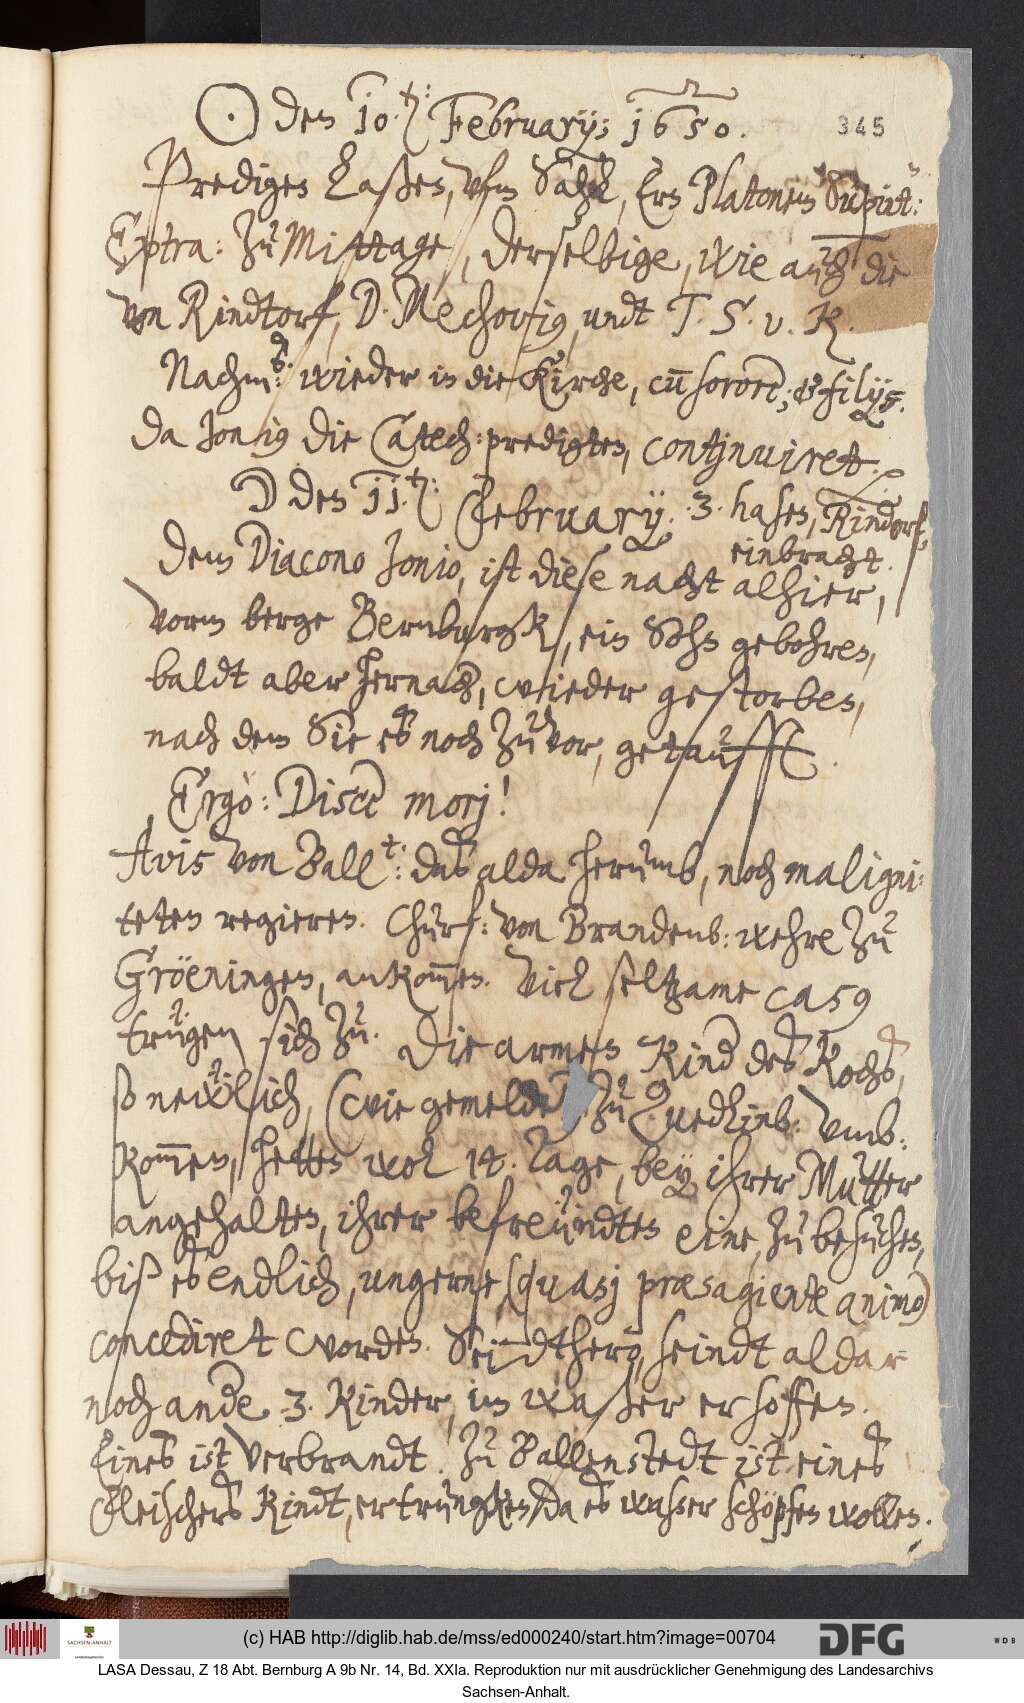 ☉ den 10.t: February; 1650.
345
Prediges laßen, vfm Sahl, Ern Platonem Sup:
Extra: zu Mittage, derselbige, wie auch die
von Rindtorf, D. Mechovius, undt T. S. v. K.
Nachm: wieder in die Kirche, cum sorore; & filijs.
Da Jonius die Catech: predigten, continuiret.
☽ den 11.t: February. .3. hasen, Rindorf,
einbracht.
Dem Diacono Jonio, ist diese nacht alhier,
vorm berge Bernburgk, ein Sohn gebohren,
baldt aber hernach, wieder gestorben,
nach dem Sie es noch zuvor, getaufft.
Ergo: Disce mori!
Avis von Ball.t: das alda herumb, noch maligni-
teten regieren. Churf: von Brandenb: wehre zu
Gröeningen, ankommen. Viel seltzame casus
trugen sich zu. Die armen Kind des Kochs,
so neẅlich, (wie gemeldet) zu Quedlinb. vmb:
kommen, hetten wol 14. Tage, bey ihrer Mutter
angehalten, ihrer befreundten eine, zu besuchen,
biß es endlich, ungerne, (quasj præsagiente animo)
concediret worden. Seindthero, seindt aldar
noch andere .3. Kinder, im waßer ersoffen.
Eines ist verbrandt. Zu Ballenstedt ist eines
Fleischers Kindt, ertruncken, da es wasser schöpfen wollen.
(c) HAB http://diglib.hab.de/mss/ed000240/start.htm?image=00704
SACHSEN-ANHALT
DFG
WDB
LASA Dessau, Z 18 Abt. Bernburg A 9b Nr. 14, Bd. XXIa. Reproduktion nur mit ausdrücklicher Genehmigung des Landesarchivs
Sachsen-Anhalt.